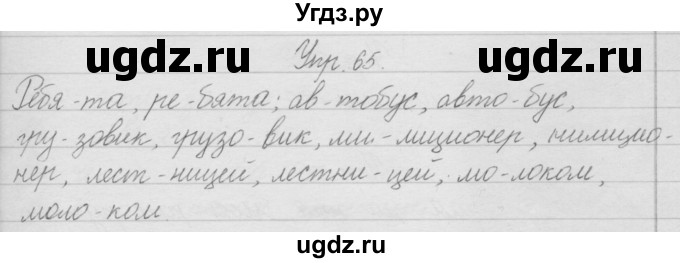 Угдз.ру
ugdz.ru ugdz.ru
Упр. 65.
Ребя-та, ре-бята; ав-тобус, авто-бус,
гру-зовик, грузо-вик, ми-лиционер, милицио-
нер, лест-ницей, лестни-цей, мо-локом,
моло-ком.
ugdz.ru ugdz.ru
ugdz.ru